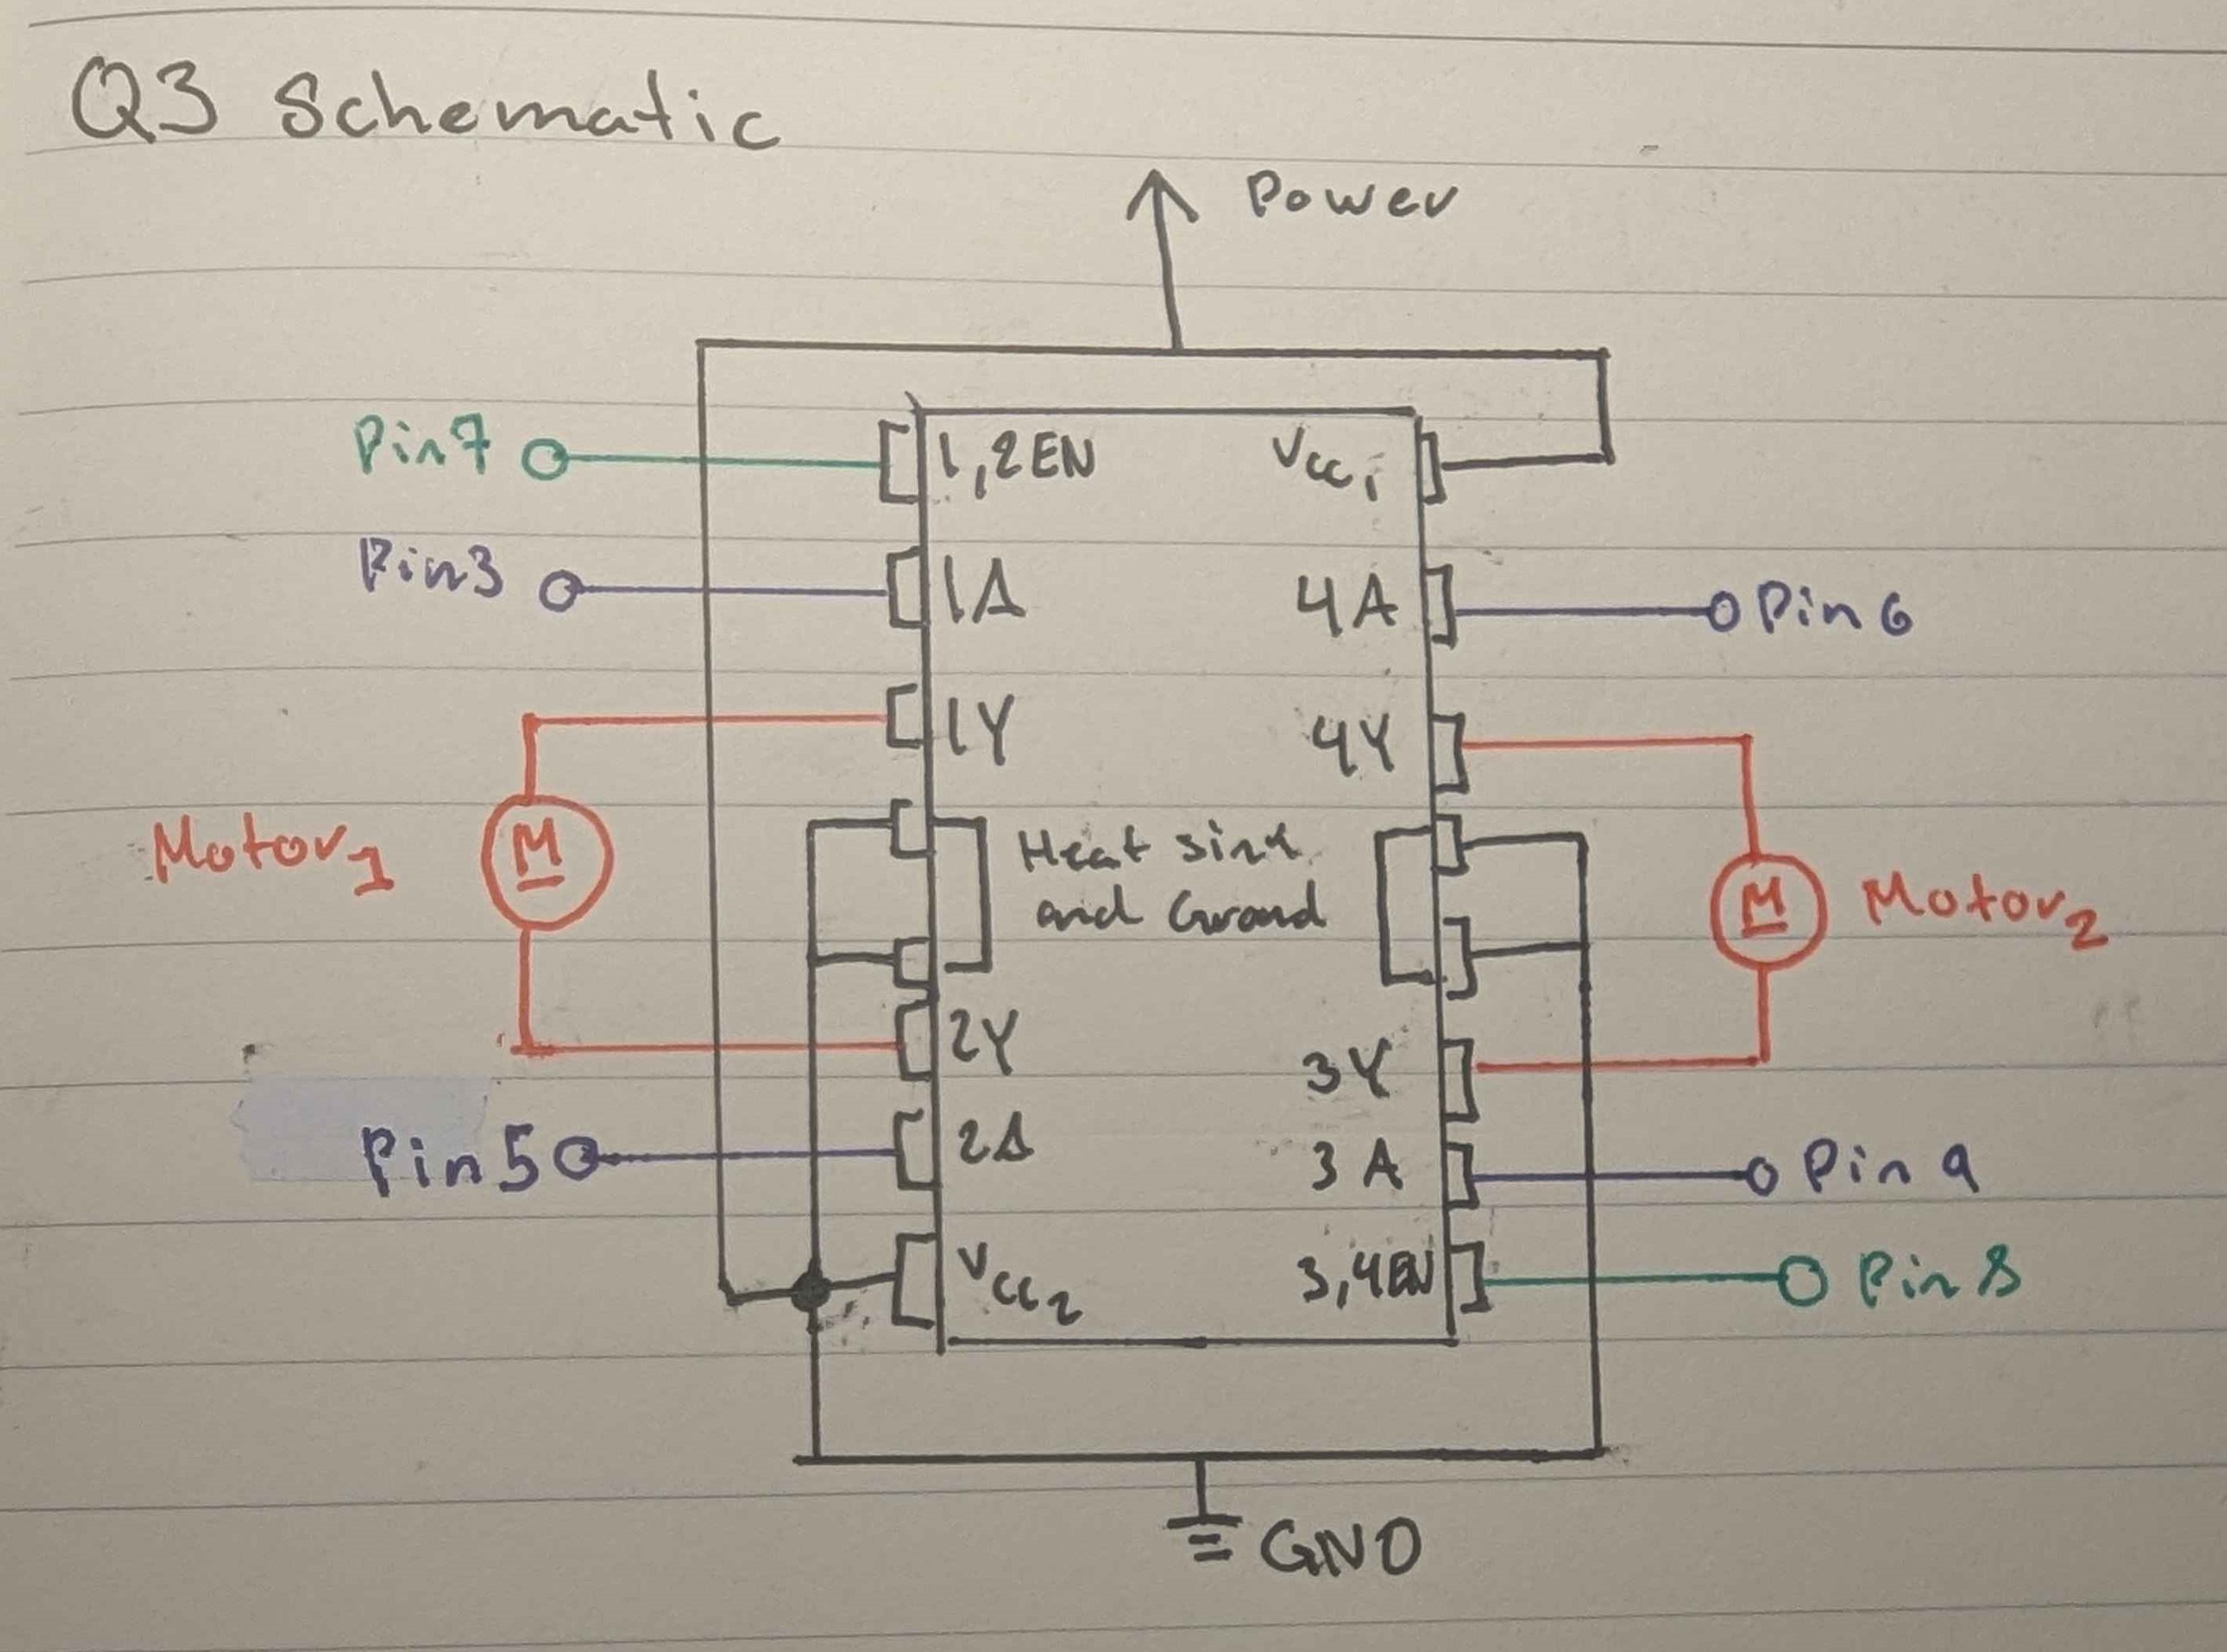 Q3 Schematic
Power
Pin7
1,2EN
Vcc1
Pin3
1A
4A
Pin 6
1Y
4Y
Motor1
M
Heat sink
and Ground
M
Motor2
2Y
3Y
Pin 5
2A
3A
Pin 9
Vcc2
3,4EN
Pin 8
GND